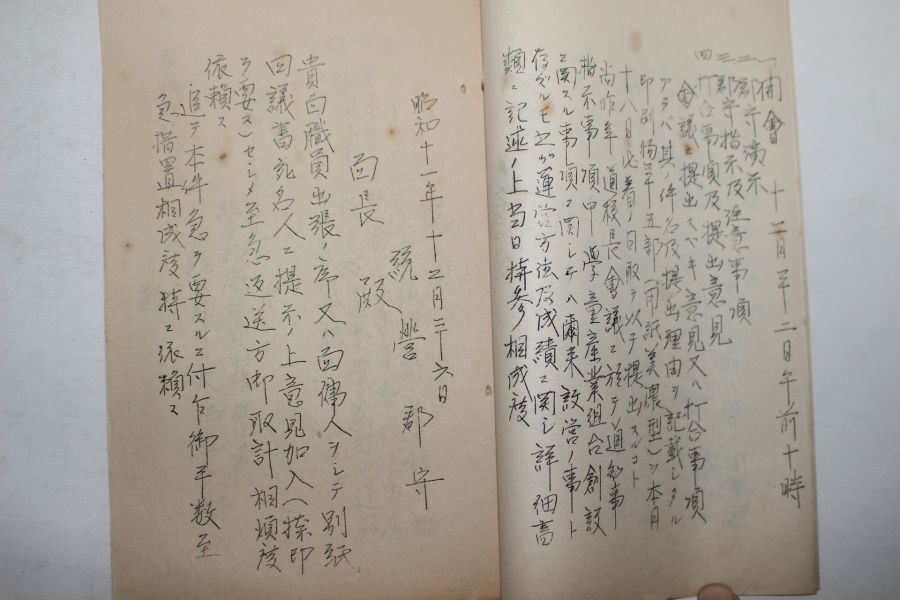 一、開會　十二月二十二日午前十時
二、郡守演示
三、郡守指示及注意事項
四、打合事項及提出意見
會議ニ提出スベキ意見又ハ打合事項
アラバ其ノ件名及提出理由ヲ記載シタル
印刷物年五部（用紙美濃型）ヲ本月
十八日必着ノ日取ヲ以テ提出スルコト
尚昨年道校長會議ニ於テ道知事
指示事項中學童産業組合創設
ニ関スル事項ニ関シテハ爾来設営ノ事ト
存ズルモ之ガ運営方法及成績ニ関シ詳細書
類ニ記述ノ上当日持参相成度
昭和十一年十二月二十六日
統營郡守
面長殿
貴面職員出張ノ序又ハ面傭人ヲシテ別紙
回議書宛名人ニ提示ノ上意見加入ヘ捺印
ヲ要ス）セシメ至急返送方御取計相煩度
依頼ス
追テ本件急ヲ要スルニ付乍御手数至
急措置相成度特ニ依頼ス